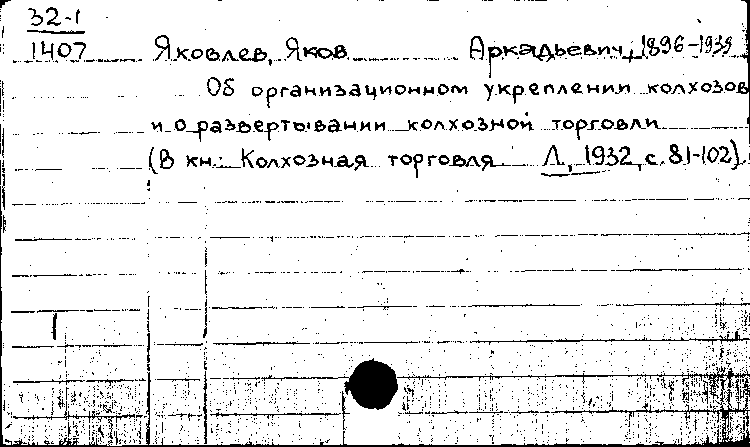 32-1
1407 Яковлев, Яков Аркадьевич, 1896-1939
Об организационном укреплении колхозов
и о развертывании колхозной торговли
(В кн.: Колхозная торговля. Л., 1932, с. 81-102).